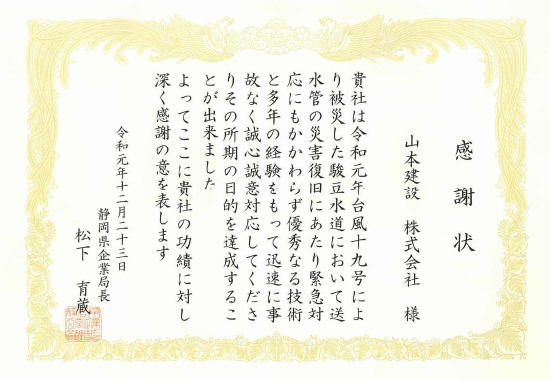 感謝状
山本建設 株式会社 様
貴社は令和元年台風十九号によ
り被災した駿豆水道において送
水管の災害復旧にあたり緊急対
応にもかかわらず優秀なる技術
と多年の経験をもって迅速に事
故なく誠心誠意対応してくださ
りその所期の目的を達成するこ
とが出来ました
よってここに貴社の功績に対し
深く感謝の意を表します
令和元年十二月二十三日
静岡県企業局長
松下 育蔵